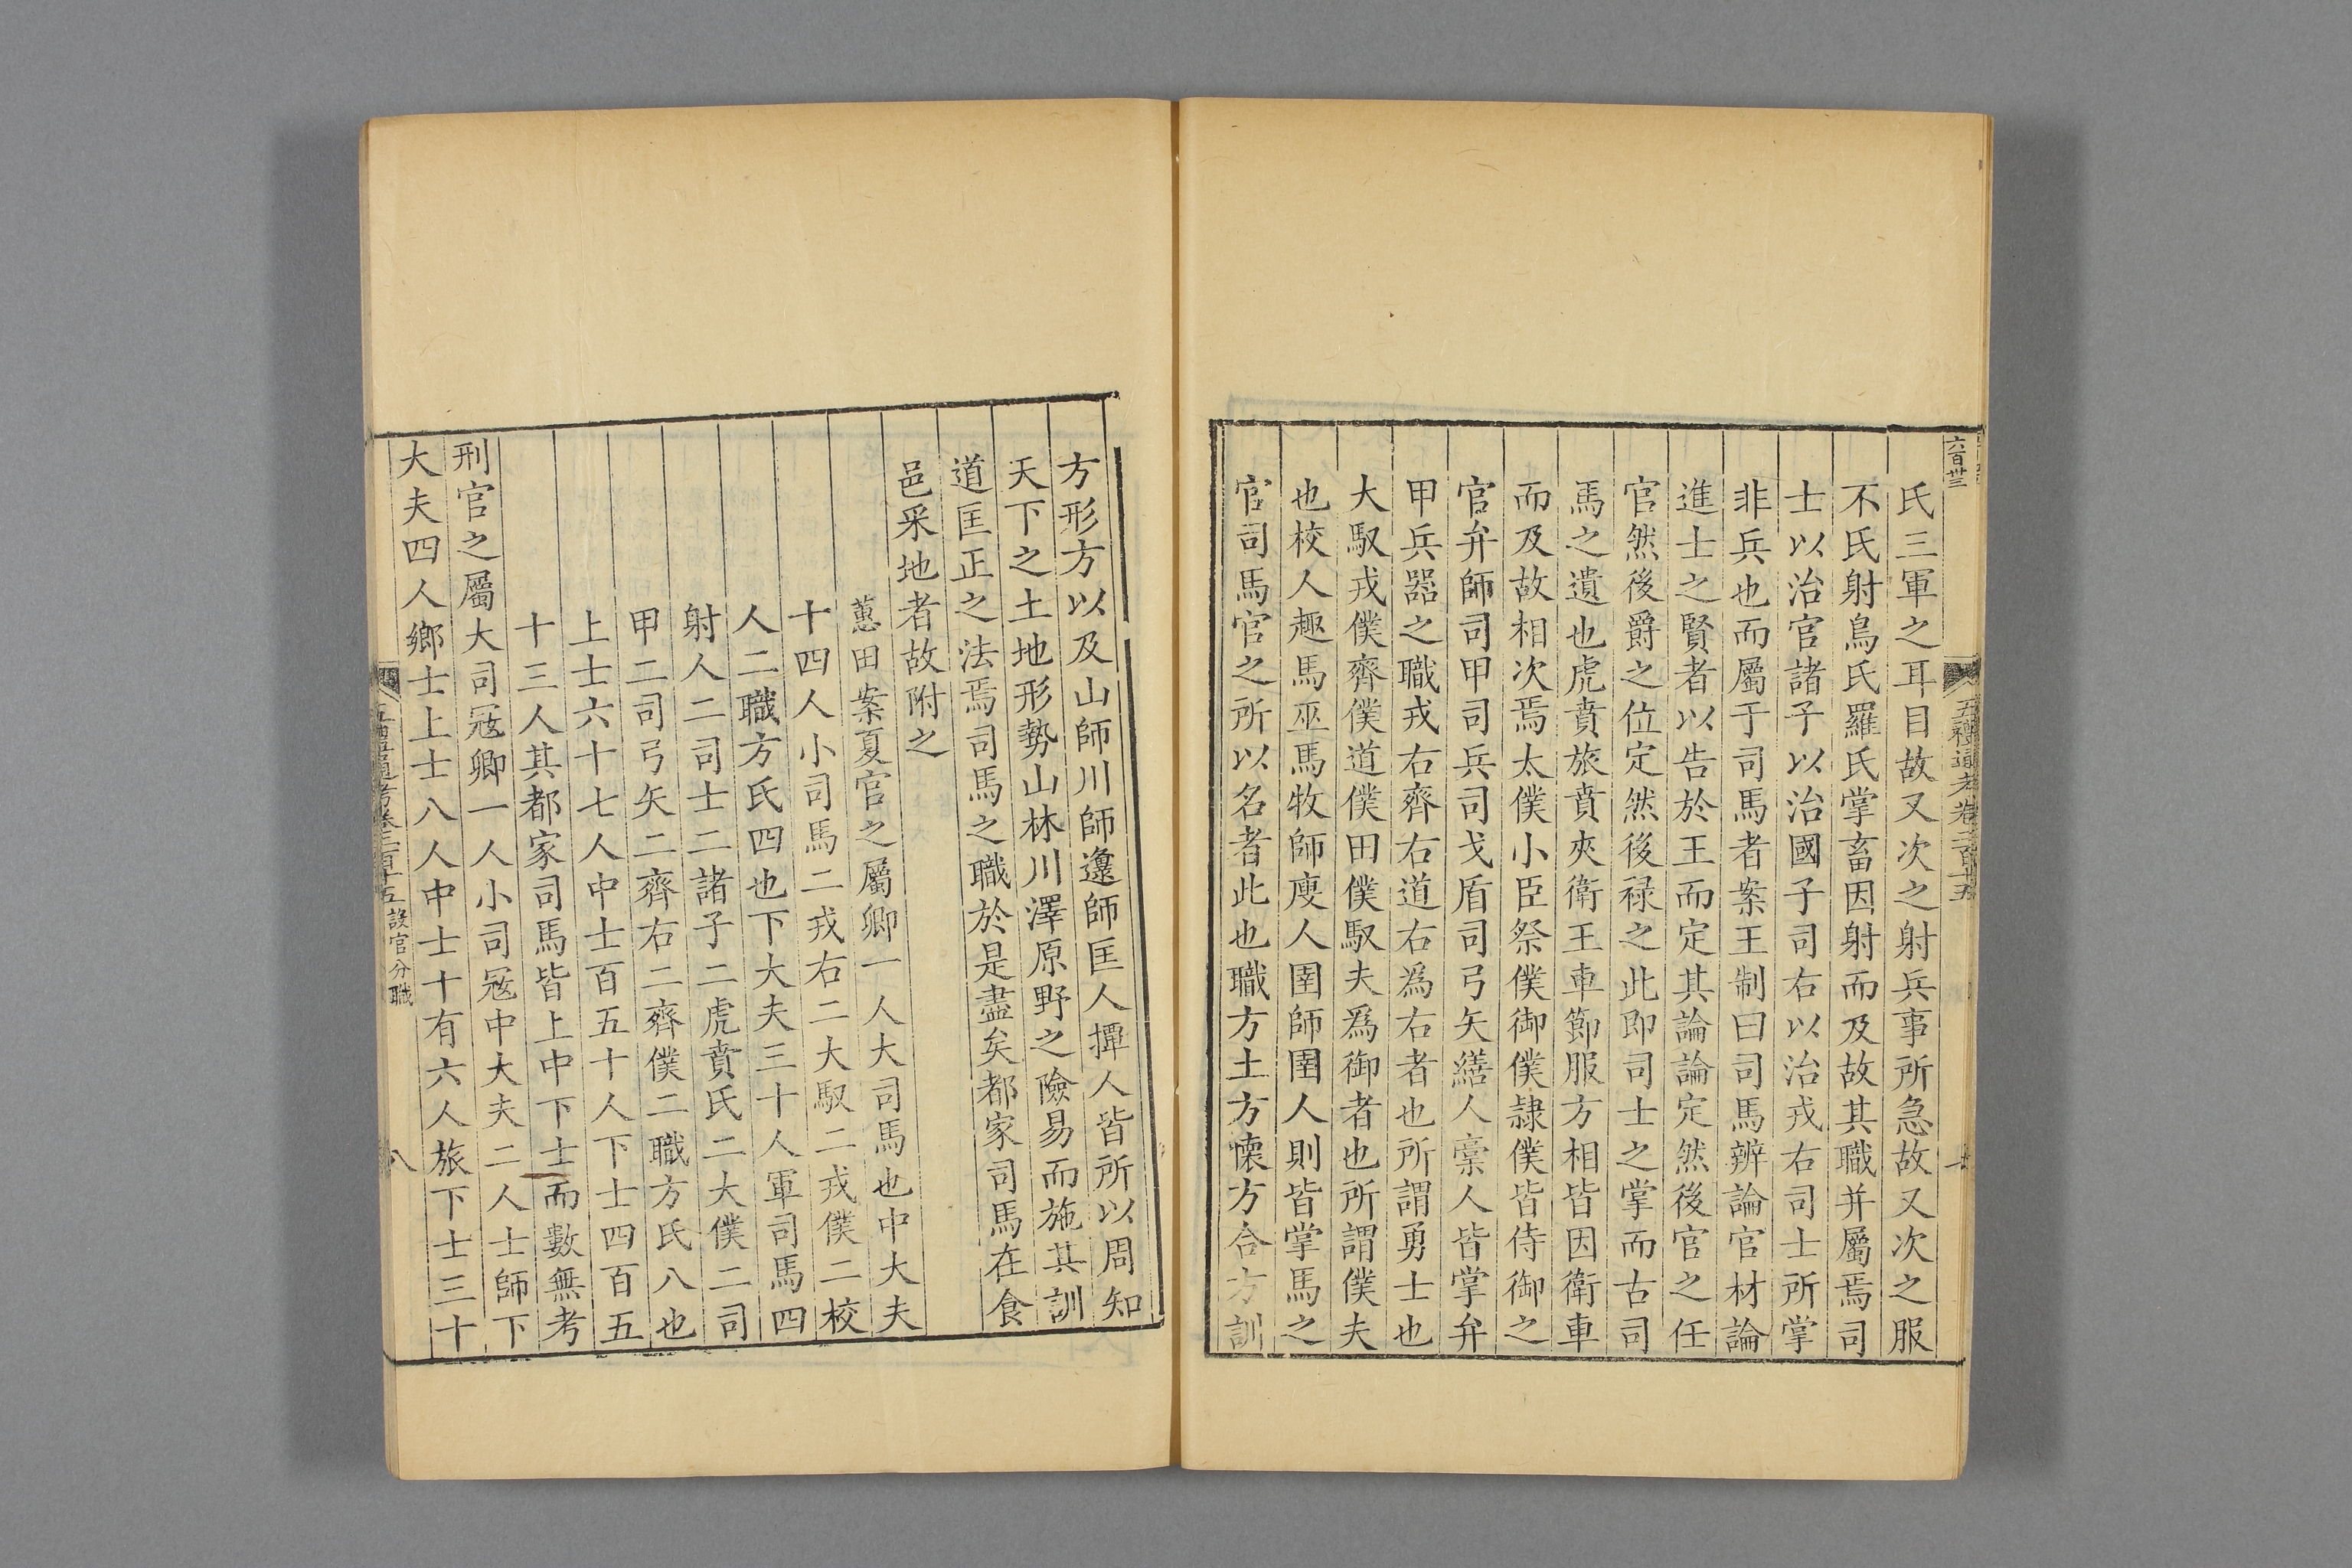 氏三軍之耳目故又次之射兵事所急故又次之服
不氏射鳥氏羅氏掌畜因射而及故其職并屬焉司
士以治官諸子以治國子司右以治戎右司士所掌
非兵也而屬于司馬者案王制曰司馬辨論官材論
進士之賢者以告於王而定其論論定然後官之任
官然後爵之位定然後祿之此即司士之掌而古司
馬之遺也虎賁旅賁夾衛王車節服方相皆因衛車
而及故相次焉太僕小臣祭僕御僕隸僕皆侍御之
官弁師司甲司兵司戈盾司弓矢繕人槀人皆掌弁
甲兵器之職戎右齊右道右爲右者也所謂勇士也
大馭戎僕齊僕道僕田僕馭夫爲御者也所謂僕夫
也校人趣馬巫馬牧師廋人圉師圉人則皆掌馬之
官司馬官之所以名者此也職方土方懷方合方訓
方形方以及山師川師邍師匡人撢人皆所以周知
天下之土地形勢山林川澤原野之險易而施其訓
道匡正之法焉司馬之職於是盡矣都家司馬在食
邑采地者故附之
蕙田案夏官之屬卿一人大司馬也中大夫
十四人小司馬二戎右二大馭二戎僕二校
人二職方氏四也下大夫三十人軍司馬四
射人二司士二諸子二虎賁氏二大僕二司
甲二司弓矢二齊右二齊僕二職方氏八也
上士六十七人中士百五十人下士四百五
十三人其都家司馬皆上中下士而數無考
刑官之屬大司寇卿一人小司寇中大夫二人士師下
大夫四人鄉士上士八人中士十有六人旅下士三十
五禮通考卷二百十五 設官分職
八